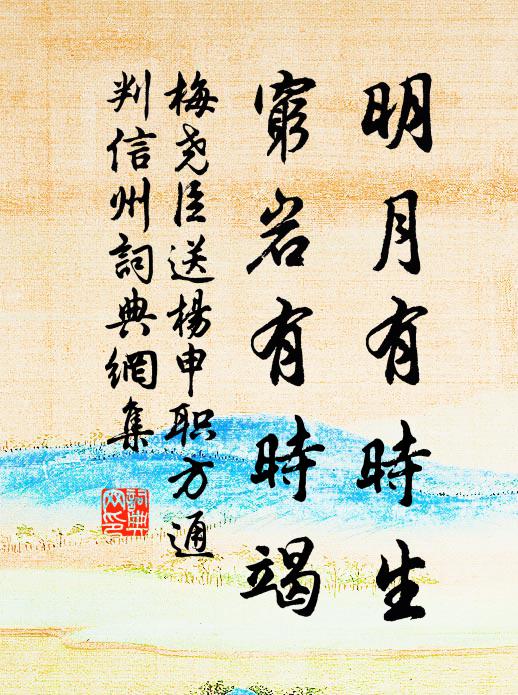 明月有時生
窮岩有時竭
梅尧臣送楊申职方通
判信州詞典網集